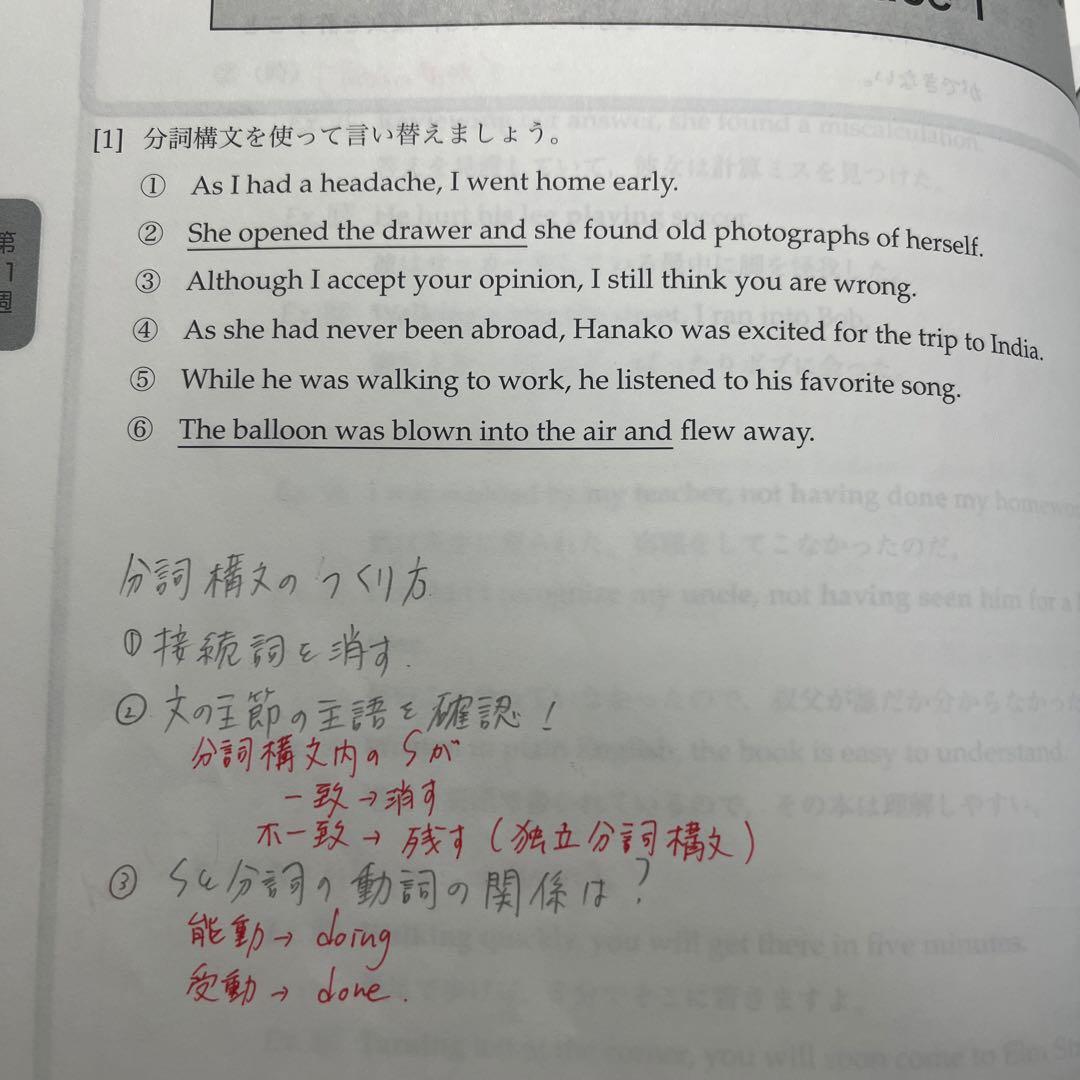 [1] 分詞構文を使って言い替えましょう。
① As I had a headache, I went home early.
② She opened the drawer and she found old photographs of herself.
③ Although I accept your opinion, I still think you are wrong.
④ As she had never been abroad, Hanako was excited for the trip to India.
⑤ While he was walking to work, he listened to his favorite song.
⑥ The balloon was blown into the air and flew away.
第
1
週
分詞構文のつくり方
① 接続詞を消す.
② 文の主節の主語を確認!
分詞構文内のSが
一致→消す
不一致→残す(独立分詞構文)
③ Sと分詞の動詞の関係は?
能動→doing
受動→done.